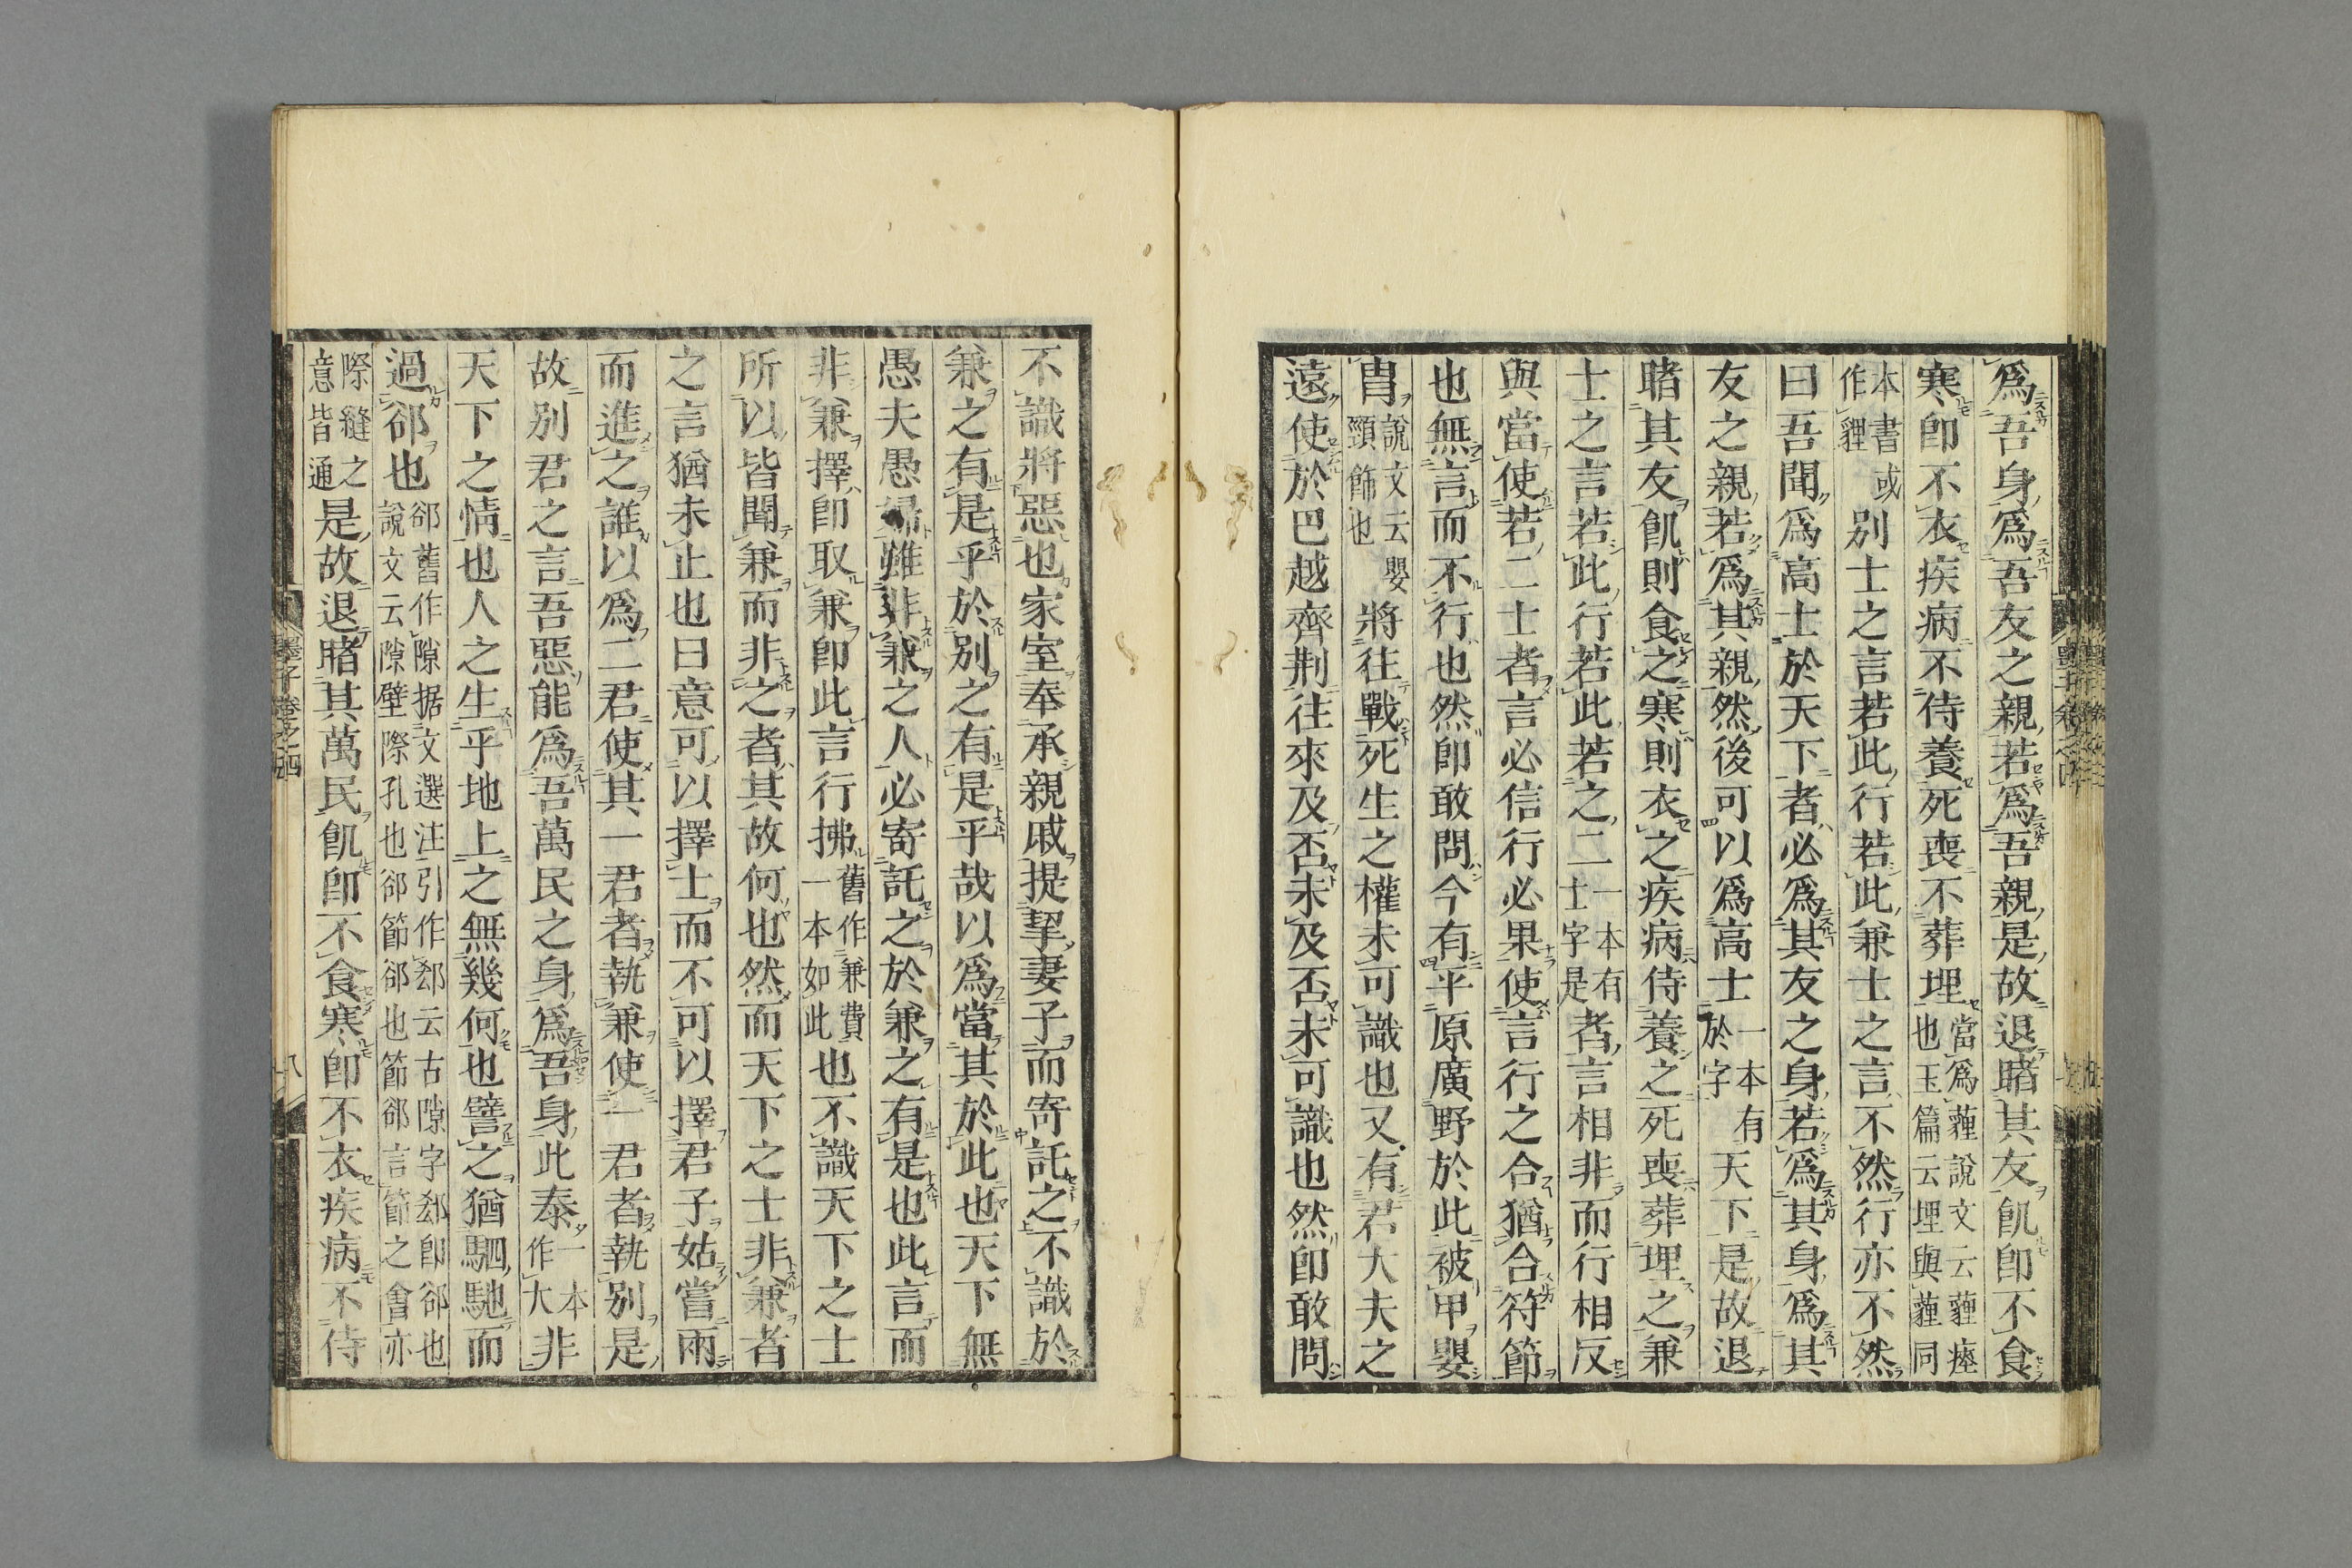 爲吾身爲吾友之親若爲吾親是故退睹其友飢卽不食
寒卽不衣疾病不侍養死喪不葬埋當爲薶說文云薶瘞也玉篇云埋與薶同
本書或作貍別士之言若此行若此兼士之言不然行亦不然
曰吾聞爲高士於天下者必爲其友之身若爲其身爲其
友之親若爲其親然後可以爲高士一本有於字天下是故退
睹其友飢則食之寒則衣之疾病侍養之死喪葬埋之兼
士之言若此行若此若之二一本有士字是者言相非而行相反
與當使若二士者言必信行必果使言行之合猶合符節
也無言而不行也然卽敢問今有平原廣野於此被甲嬰
胄說文云嬰頸飾也將往戰死生之權未可識也又有君大夫之
遠使於巴越齊荆往來及否未及否未可識也然卽敢問
不識將惡也家室奉承親戚提挈妻子而寄託之不識於
兼之有是乎於別之有是乎哉以爲當其於此也天下無
愚夫愚婦雖非兼之人必寄託之於兼之有是也此言而
非兼擇卽取兼卽此言行拂舊作兼費一本如此也不識天下之士
所以皆聞兼而非之者其故何也然而天下之士非兼者
之言猶未止也曰意可以擇士而不可以擇君子姑嘗兩
而進之誰以爲二君使其一君者執兼使一君者執別是
故別君之言吾惡能爲吾萬民之身爲吾身此泰一本作大非
天下之情也人之生乎地上之無幾何也譬之猶駟馳而
過郤也郤舊作隙据文選注引作郄云古隙字郄卽郤也說文云隙壁際孔也郤節郤也節郤言節之會亦
際縫之意皆通是故退睹其萬民飢卽不食寒卽不衣疾病不侍
墨子卷之四
八